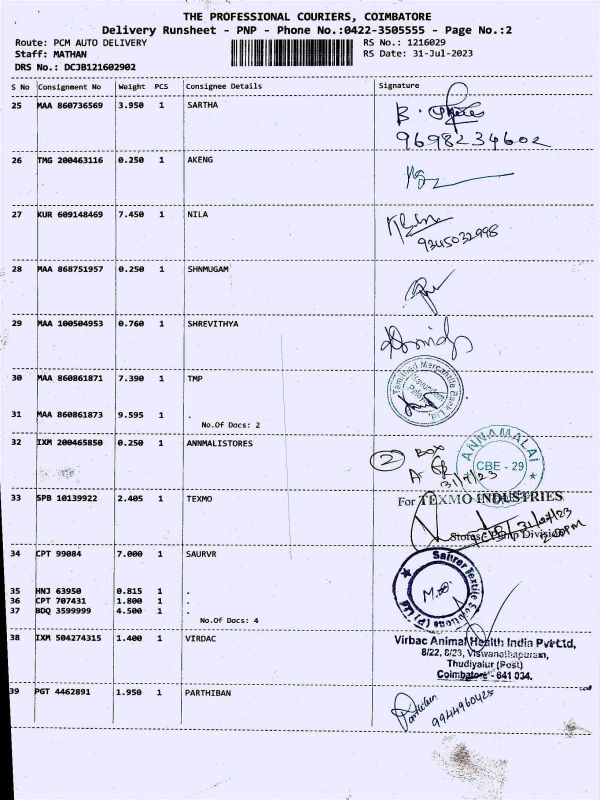 THE PROFESSIONAL COURIERS, COIMBATORE
Delivery Runsheet - PNP - Phone No.:0422-3505555 - Page No.:2
Route: PCM AUTO DELIVERY RS No.: 1216029
Staff: MATHAN RS Date: 31-Jul-2023
DRS No.: DCJB121602902
S No Consignment No Weight PCS Consignee Details Signature
25 MAA 860736569 3.950 1 SARTHA B.
9698234602
26 TMG 200463116 0.250 1 AKENG
27 KUR 609148469 7.450 1 NILA
9345032998
28 MAA 868751957 0.250 1 SHNMUGAM
29 MAA 100504953 0.760 1 SHREVITHYA
30 MAA 860861871 7.390 1 TMP
Tamilnad Mercantile Bank Ltd.
31 MAA 860861873 9.595 1 .
No.Of Docs: 2
32 IXM 200465850 0.250 1 ANNMALISTORES
2 BOX
31/7/23
ANNAMALAI
CBE - 29
33 SPB 10139922 2.405 1 TEXMO
For TEXMO INDUSTRIES
31/07/23
Stores Pump Division
34 CPT 99084 7.000 1 SAURVR
35 HNJ 63950 0.815 1 .
36 CPT 707431 1.800 1 .
37 BDQ 3599999 4.500 1 .
No.Of Docs: 4
38 IXM 504274315 1.400 1 VIRDAC
Virbac Animal Health India Pvt Ltd,
8/22, 8/23, Viswanathapuram,
Thudiyalur (Post)
Coimbatore - 641 034.
39 PGT 4462891 1.950 1 PARTHIBAN
Parthiban
9944960425